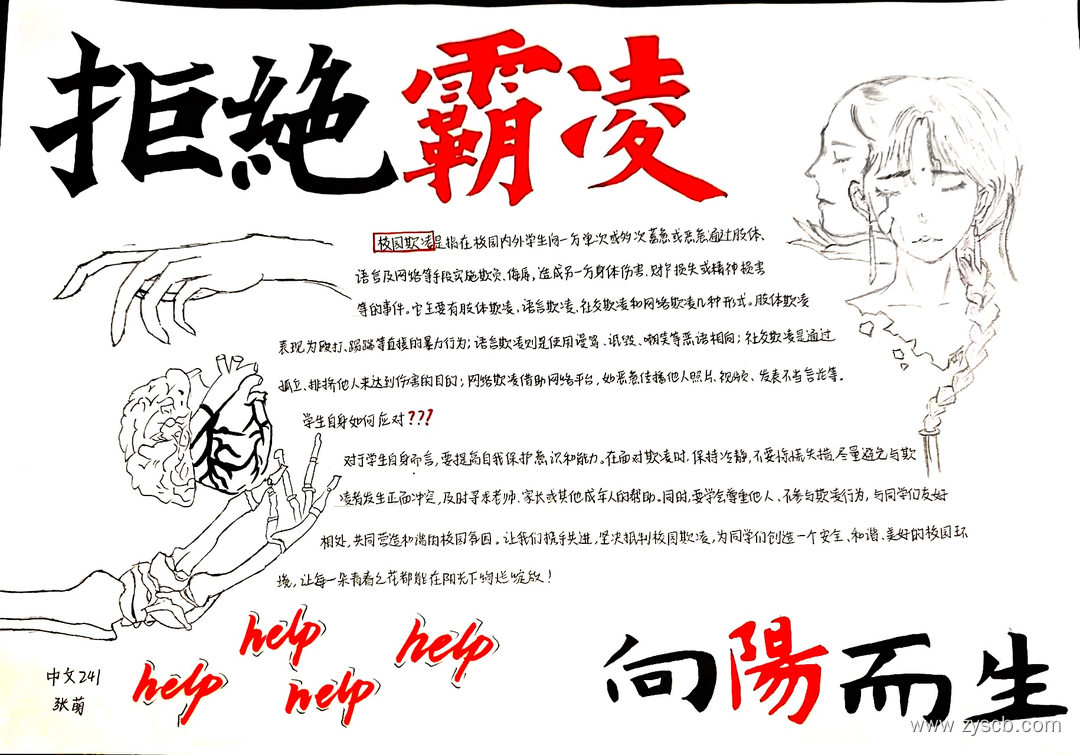 拒絕霸凌
校园欺凌是指在校园内外学生间一方单次或多次蓄意或恶意通过肢体、
语言及网络等手段实施欺负、侮辱，造成另一方身体伤害、财产损失或精神损害
等的事件。它主要有肢体欺凌、语言欺凌、社交欺凌和网络欺凌几种形式。肢体欺凌
表现为殴打、踢踹等直接的暴力行为；语言欺凌则是使用谩骂、诋毁、嘲笑等恶语相向；社交欺凌是通过
孤立、排挤他人来达到伤害的目的；网络欺凌借助网络平台，如恶意传播他人照片、视频、发表不当言论等。
学生自身如何应对???
对于学生自身而言，要提高自我保护意识和能力。在面对欺凌时，保持冷静，不要惊慌失措，尽量避免与欺
凌者发生正面冲突，及时寻求老师、家长或其他成年人的帮助。同时，要学会尊重他人、不参与欺凌行为，与同学们友好
相处，共同营造和谐的校园氛围。让我们携手共进，坚决抵制校园欺凌，为同学们创造一个安全、和谐、美好的校园环
境，让每一朵青春之花都能在阳光下绚烂绽放！
help
help
help
help
中文241
张萌
向陽而生
www.zyscb.com